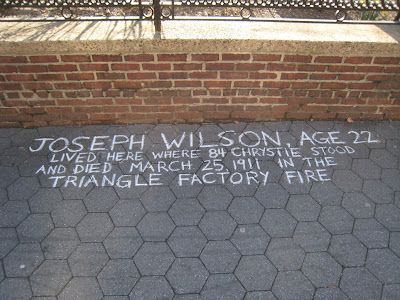 JOSEPH WILSON, AGE 22
LIVED HERE WHERE 84 CHRYSTIE STOOD
AND DIED MARCH 25, 1911 IN THE
TRIANGLE FACTORY FIRE